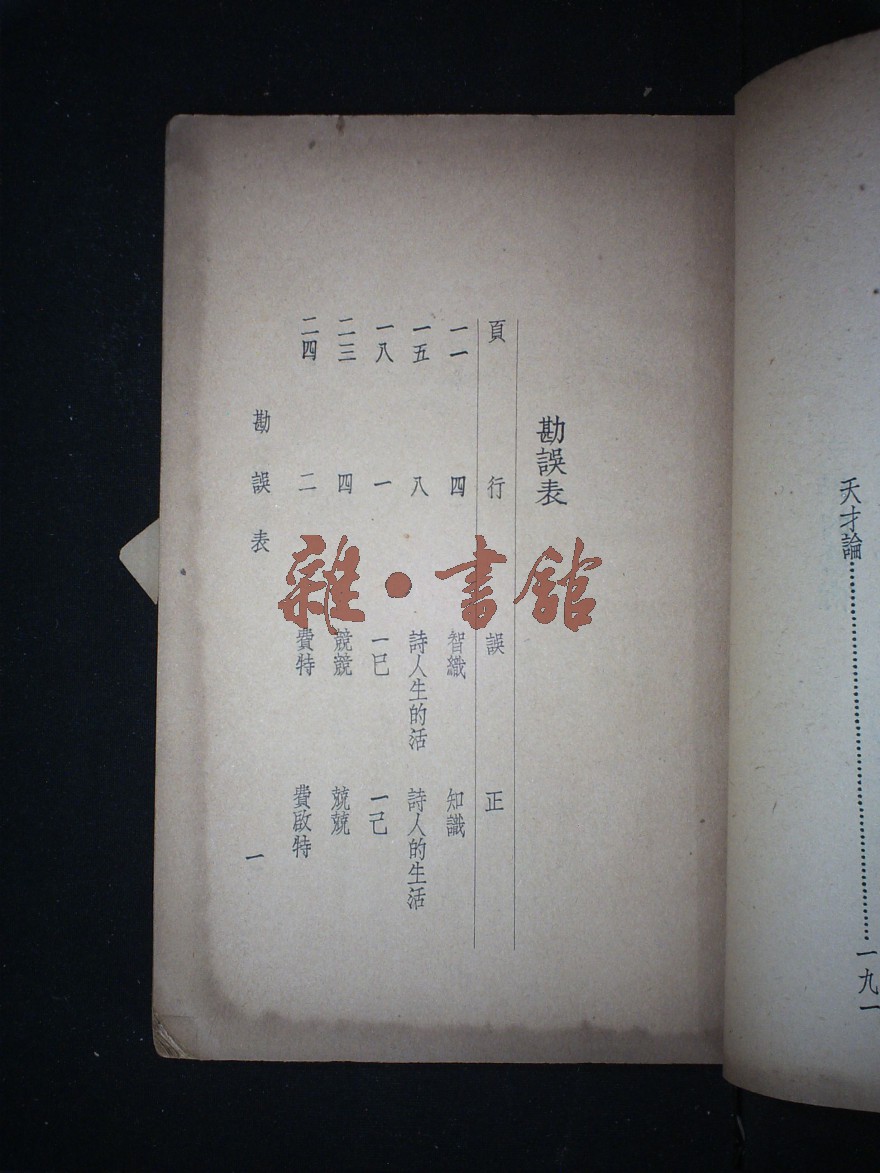 天才論……………………一九一
勘誤表
頁 行 誤 正
一一 四 智織 知識
一五 八 詩人生的活 詩人的生活
一八 一 一巳 一己
二三 四 競競 兢兢
二四 二 費特 費啟特
勘誤表 一
雜·書館